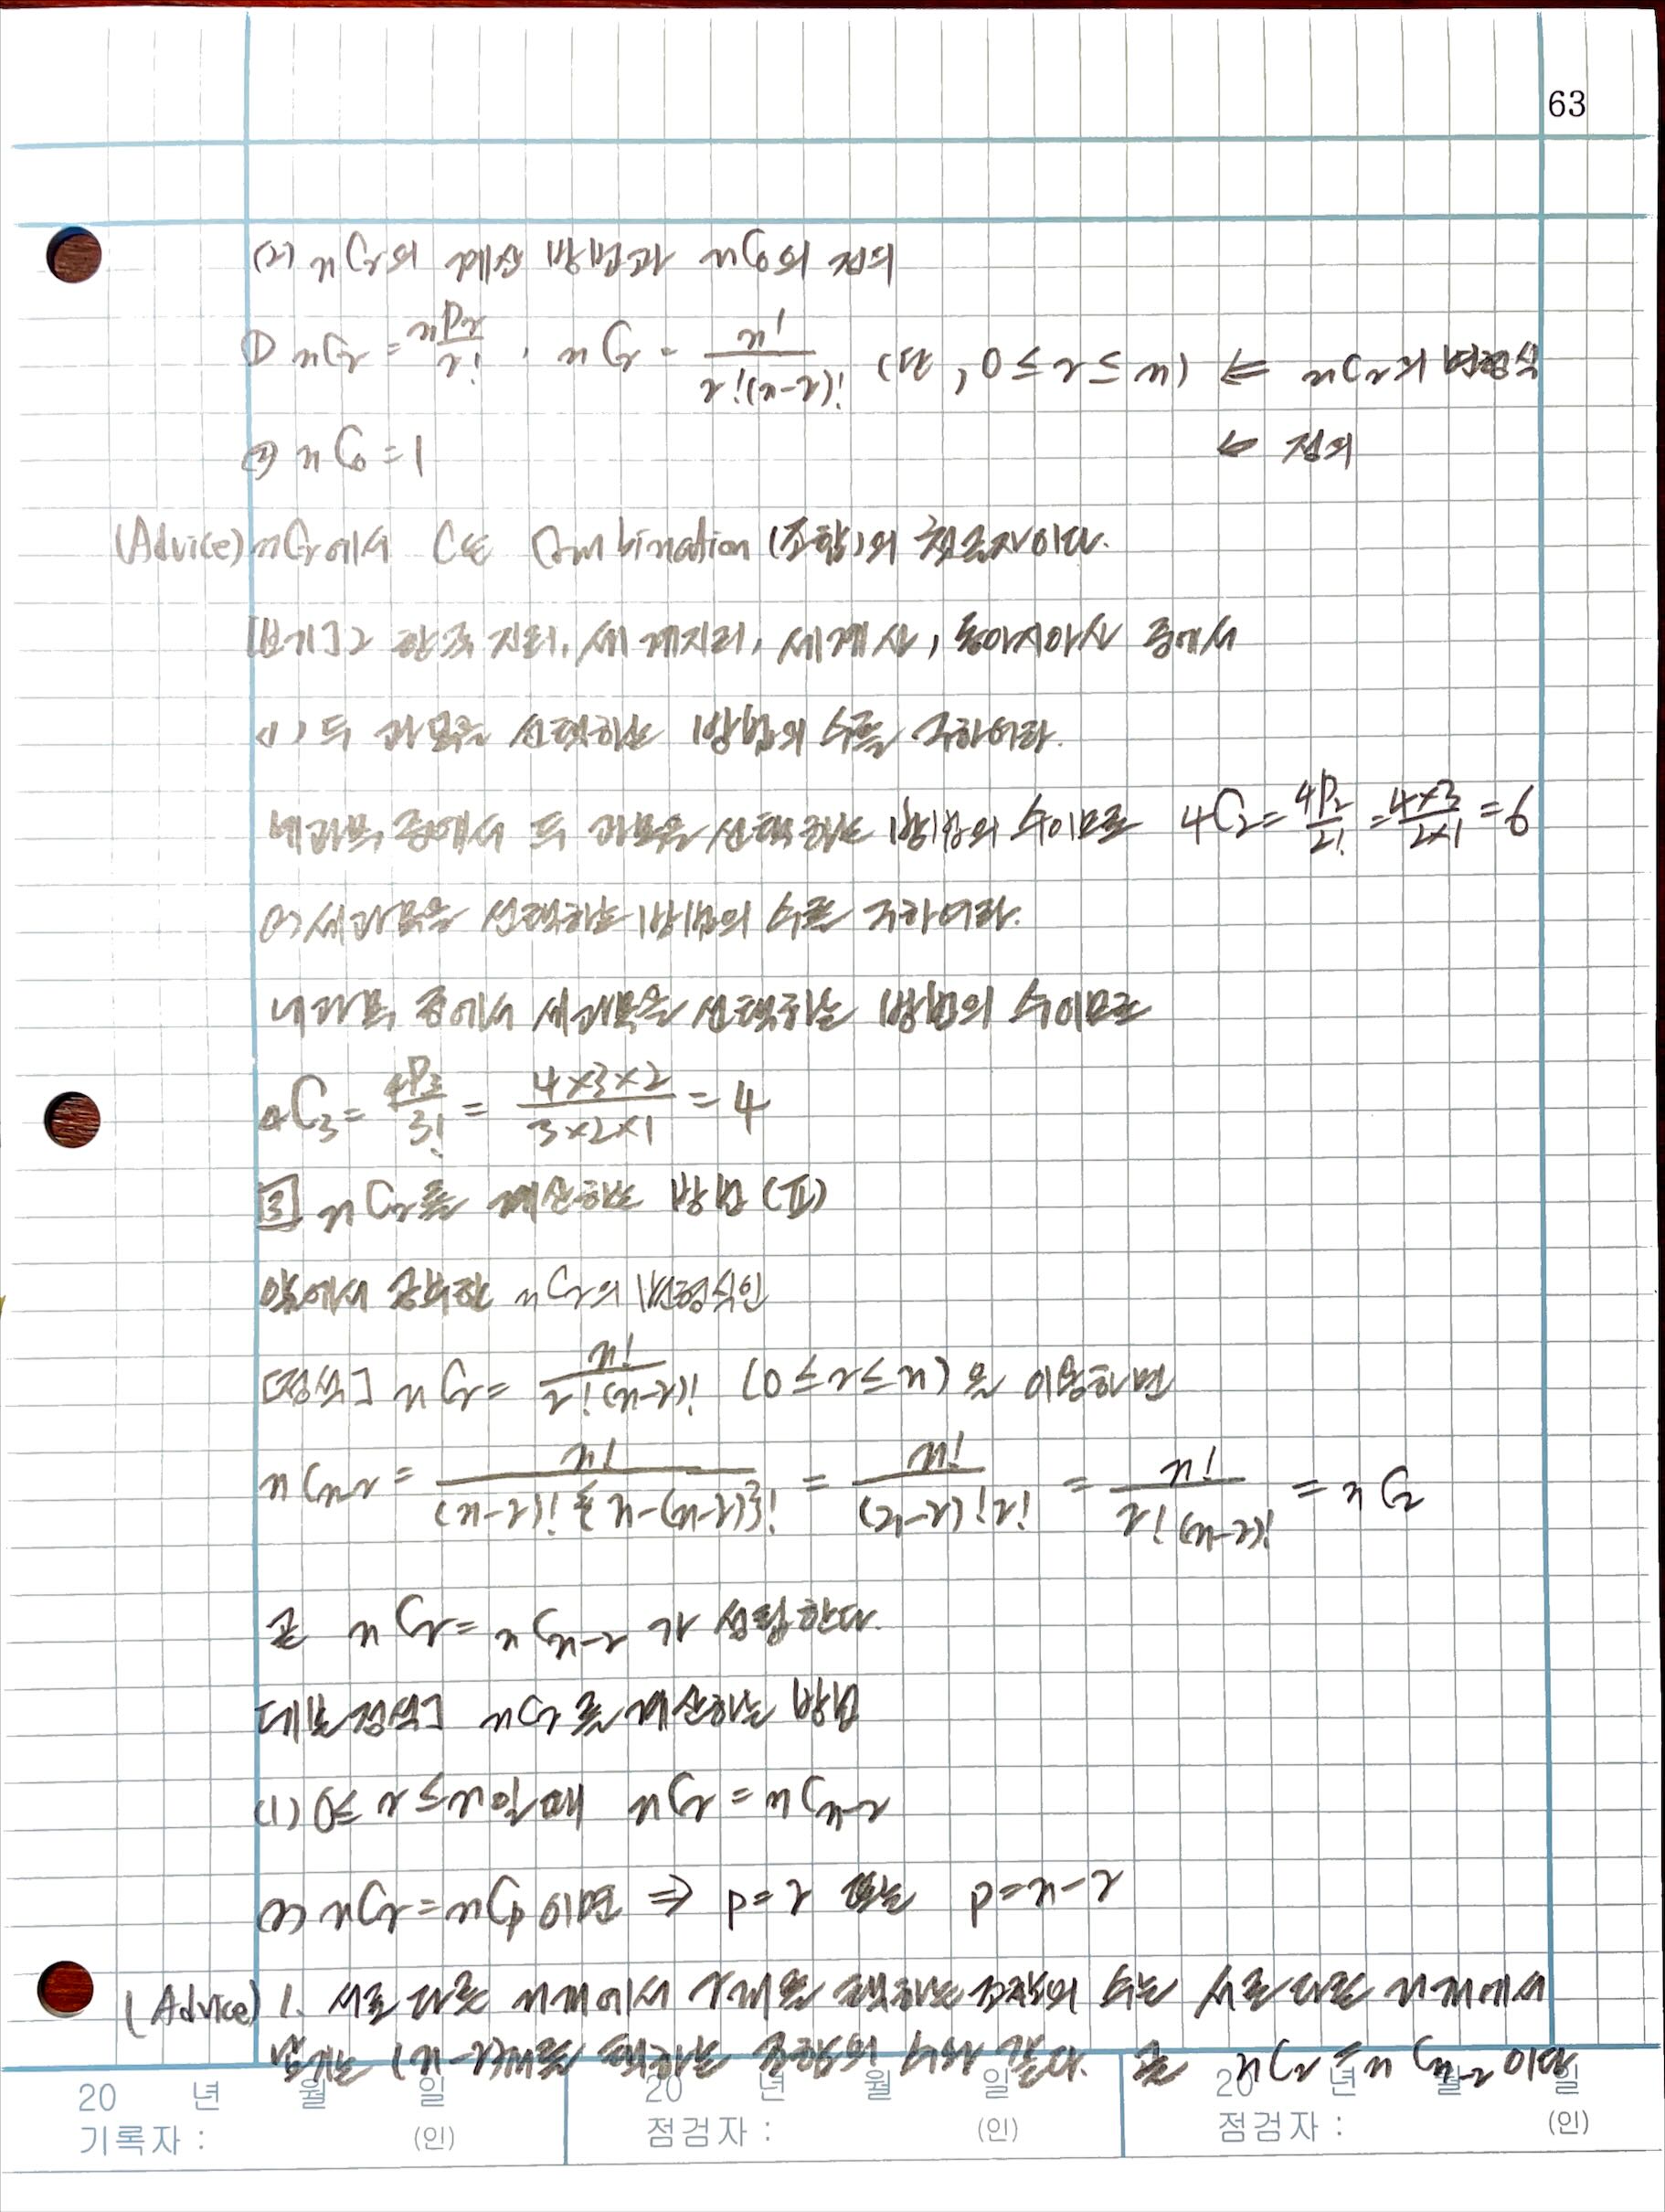 63
(2) nCr의 계산 방법과 nC0의 정의
① nCr = nPr/r! , nCr = n!/r!(n-r)! (단, 0≤r≤n) ⇐ nCr의 변형식
② nC0 = 1 ⇐ 정의
(Advice) nCr에서 C는 Combination (조합)의 첫글자이다.
[보기]2 한국 지리, 세계지리, 세계사, 동아시아사 중에서
(1) 두 과목을 선택하는 방법의 수를 구하여라.
네과목 중에서 두 과목을 선택하는 방법의 수이므로 4C2 = 4P2/2! = 4×3/2×1 = 6
(2) 세과목을 선택하는 방법의 수를 구하여라.
네과목 중에서 세과목을 선택하는 방법의 수이므로
4C3 = 4P3/3! = 4×3×2/3×2×1 = 4
[3] nCr를 계산하는 방법 (II)
앞에서 공부한 nCr의 변형식인
[정석] nCr = n!/r!(n-r)! (0≤r≤n)을 이용하면
nCn-r = n!/(n-r)!{n-(n-r)}! = n!/(n-r)!r! = n!/r!(n-r)! = nCr
곧 nCr = nCn-r 가 성립한다.
[기본정석] nCr를 계산하는 방법
(1) 0≤r≤n일 때 nCr = nCn-r
(2) nCr = nCp이면 ⇒ p=r 또는 p=n-r
(Advice) 1. 서로 다른 n개에서 r개를 택하는 조합의 수는 서로 다른 n개에서
남기는 (n-r)개를 택하는 조합의 수와 같다. 곧 nCr = nCn-r 이다
20 년 월 일 20 년 월 일 20 년 월 일
기록자 : (인) 점검자 : (인) 점검자 : (인)